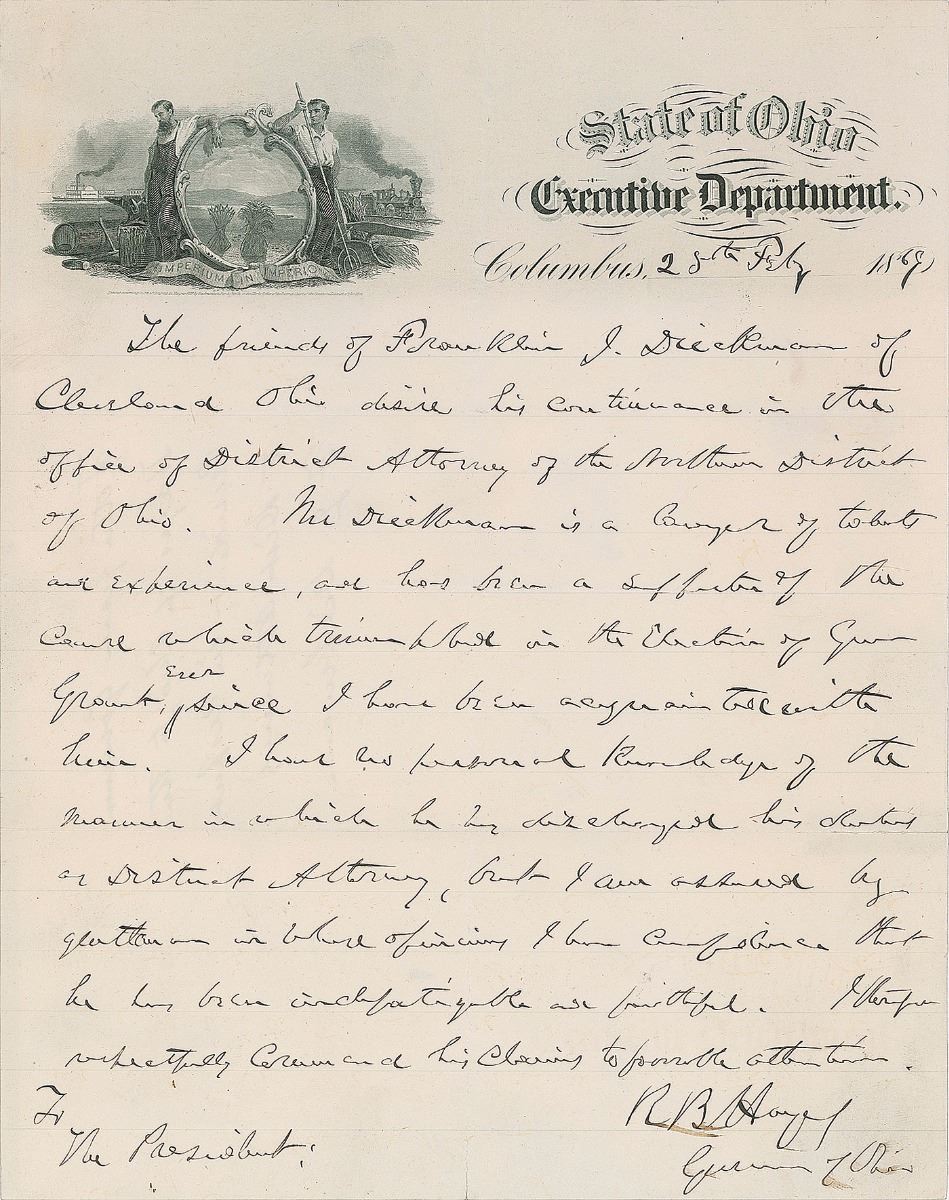 State of Ohio
Executive Department.
IMPERIUM IN IMPERIO
Columbus, 28th Feby 1869
The friends of Franklin J. Dickman of
Cleveland Ohio desire his continuance in the
office of District Attorney of the Northern District
of Ohio. Mr Dickman is a lawyer of talents
and experience, and has been a supporter of the
cause which triumphed in the Election of Gen
Ever
Grant, since I have been acquainted with
him. I have no personal knowledge of the
manner in which he has discharged his duties
as District Attorney, but I am assured by
gentlemen in whose opinions I have confidence that
he has been indefatigable and faithful. I therefore
respectfully commend his claims to favorable attention.
R B Hayes
Governor of Ohio
To
The President: